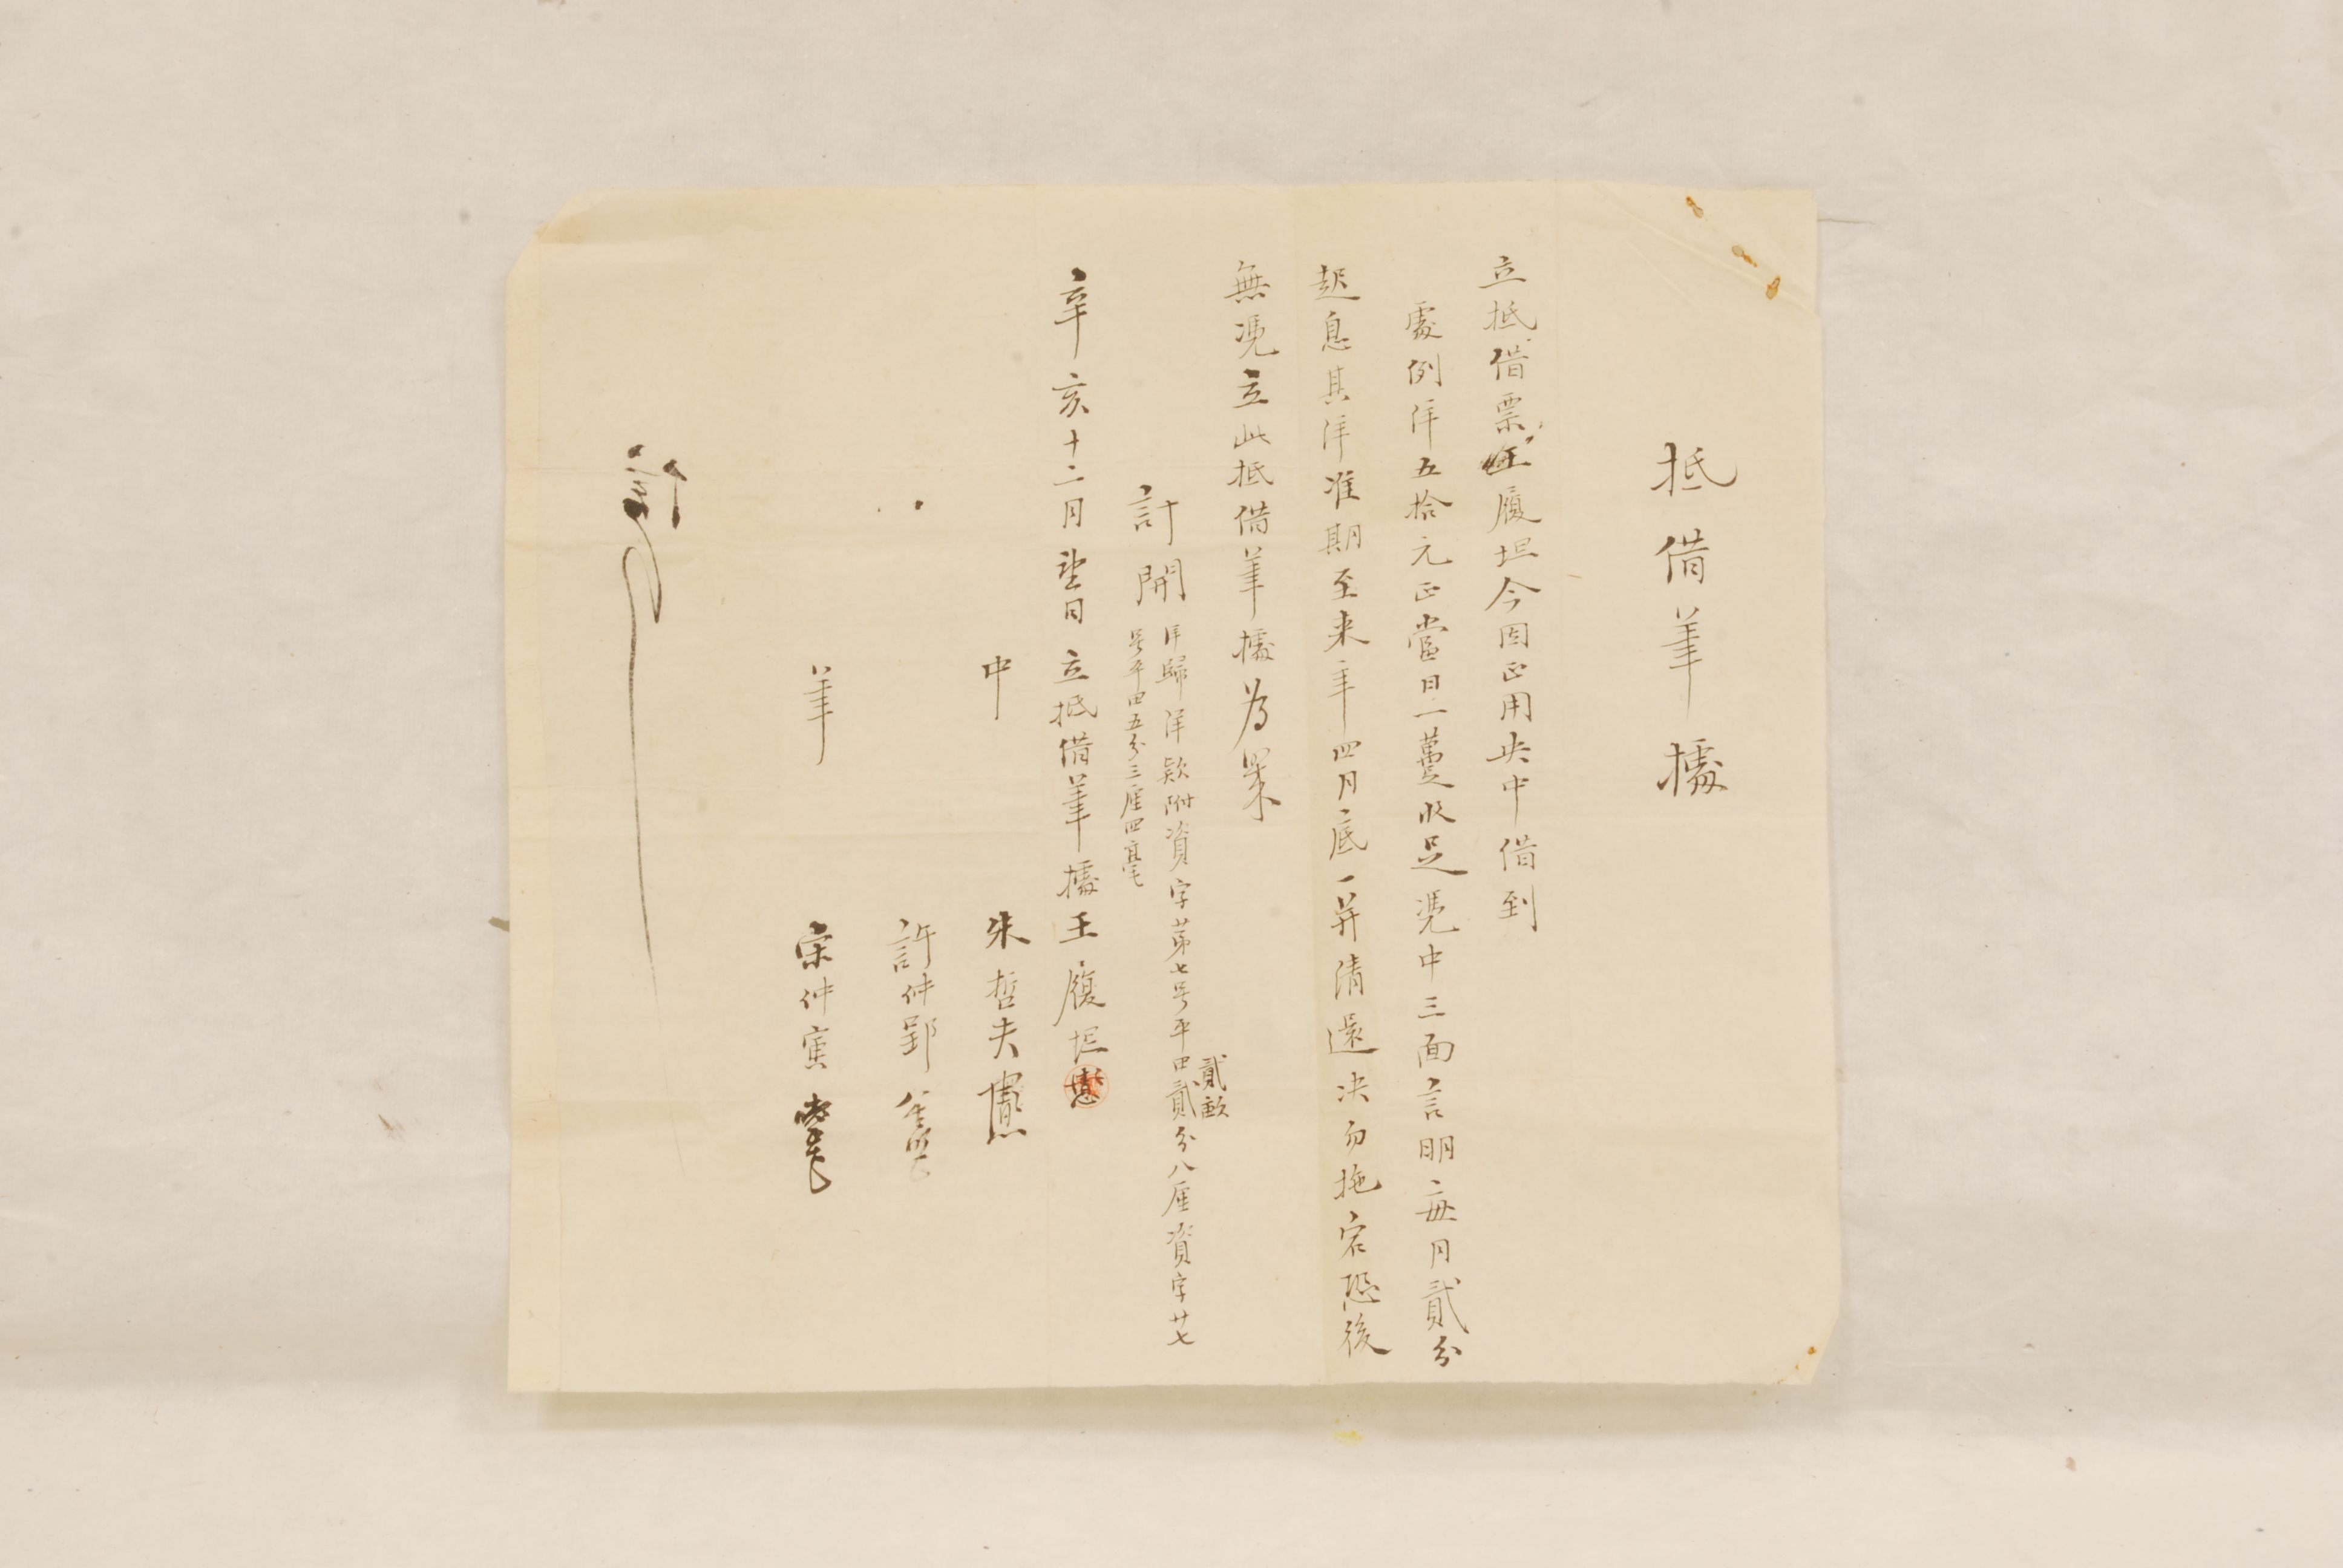 抵借筆據
立抵借票王履坦今因正用央中借到
處例洋五拾元正當日一蔓收足憑中三面言明每月貳分
起息其洋准期至来年四月底一并清還决勿拖宕恐後
無憑立此抵借筆據為業
計開 洋歸洋款附資字第七号平田貳畝貳分八厘資字廿七
号平田五分三厘四毫
辛亥十二月望日立抵借筆據王履坦
中 朱哲夫
許仲郢
筆 宋仲寅